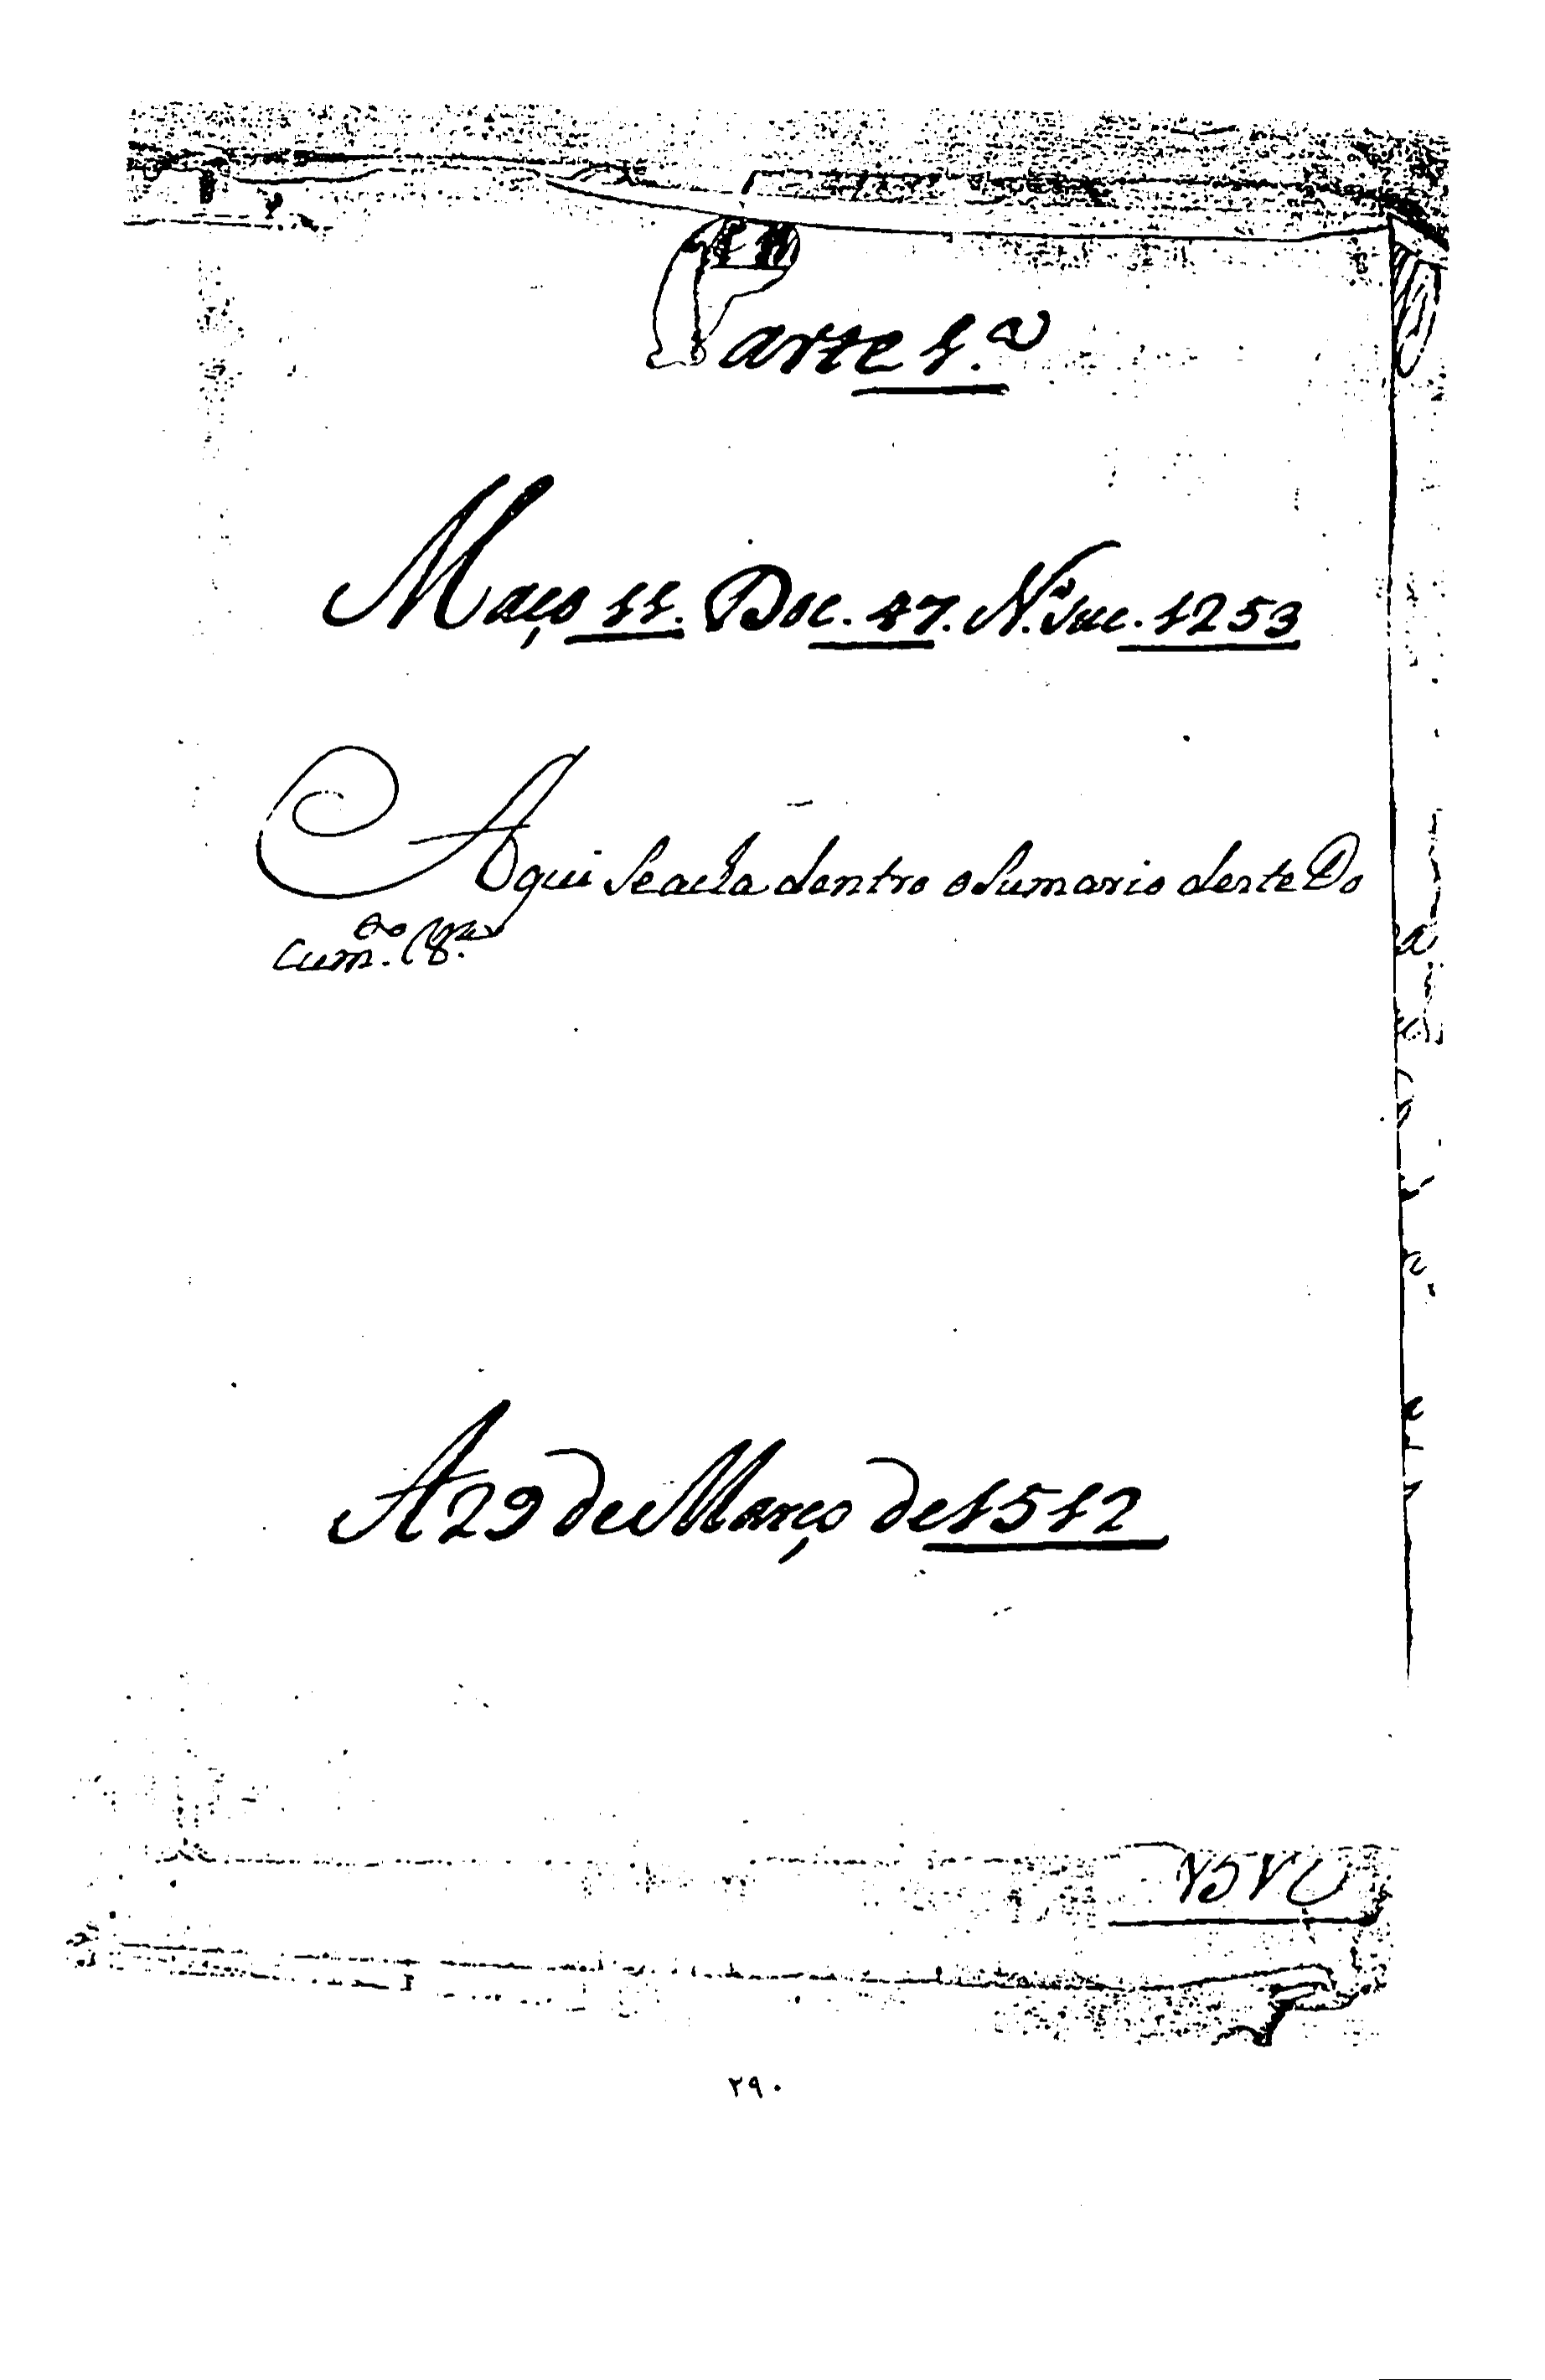 Parte 1.ª
Maço 11. Doc. 47. N.º suc. 1253
Aqui se acha dentro o Sumario deste Do
cum.to
A 29 de Março de 1512
٢٩٠